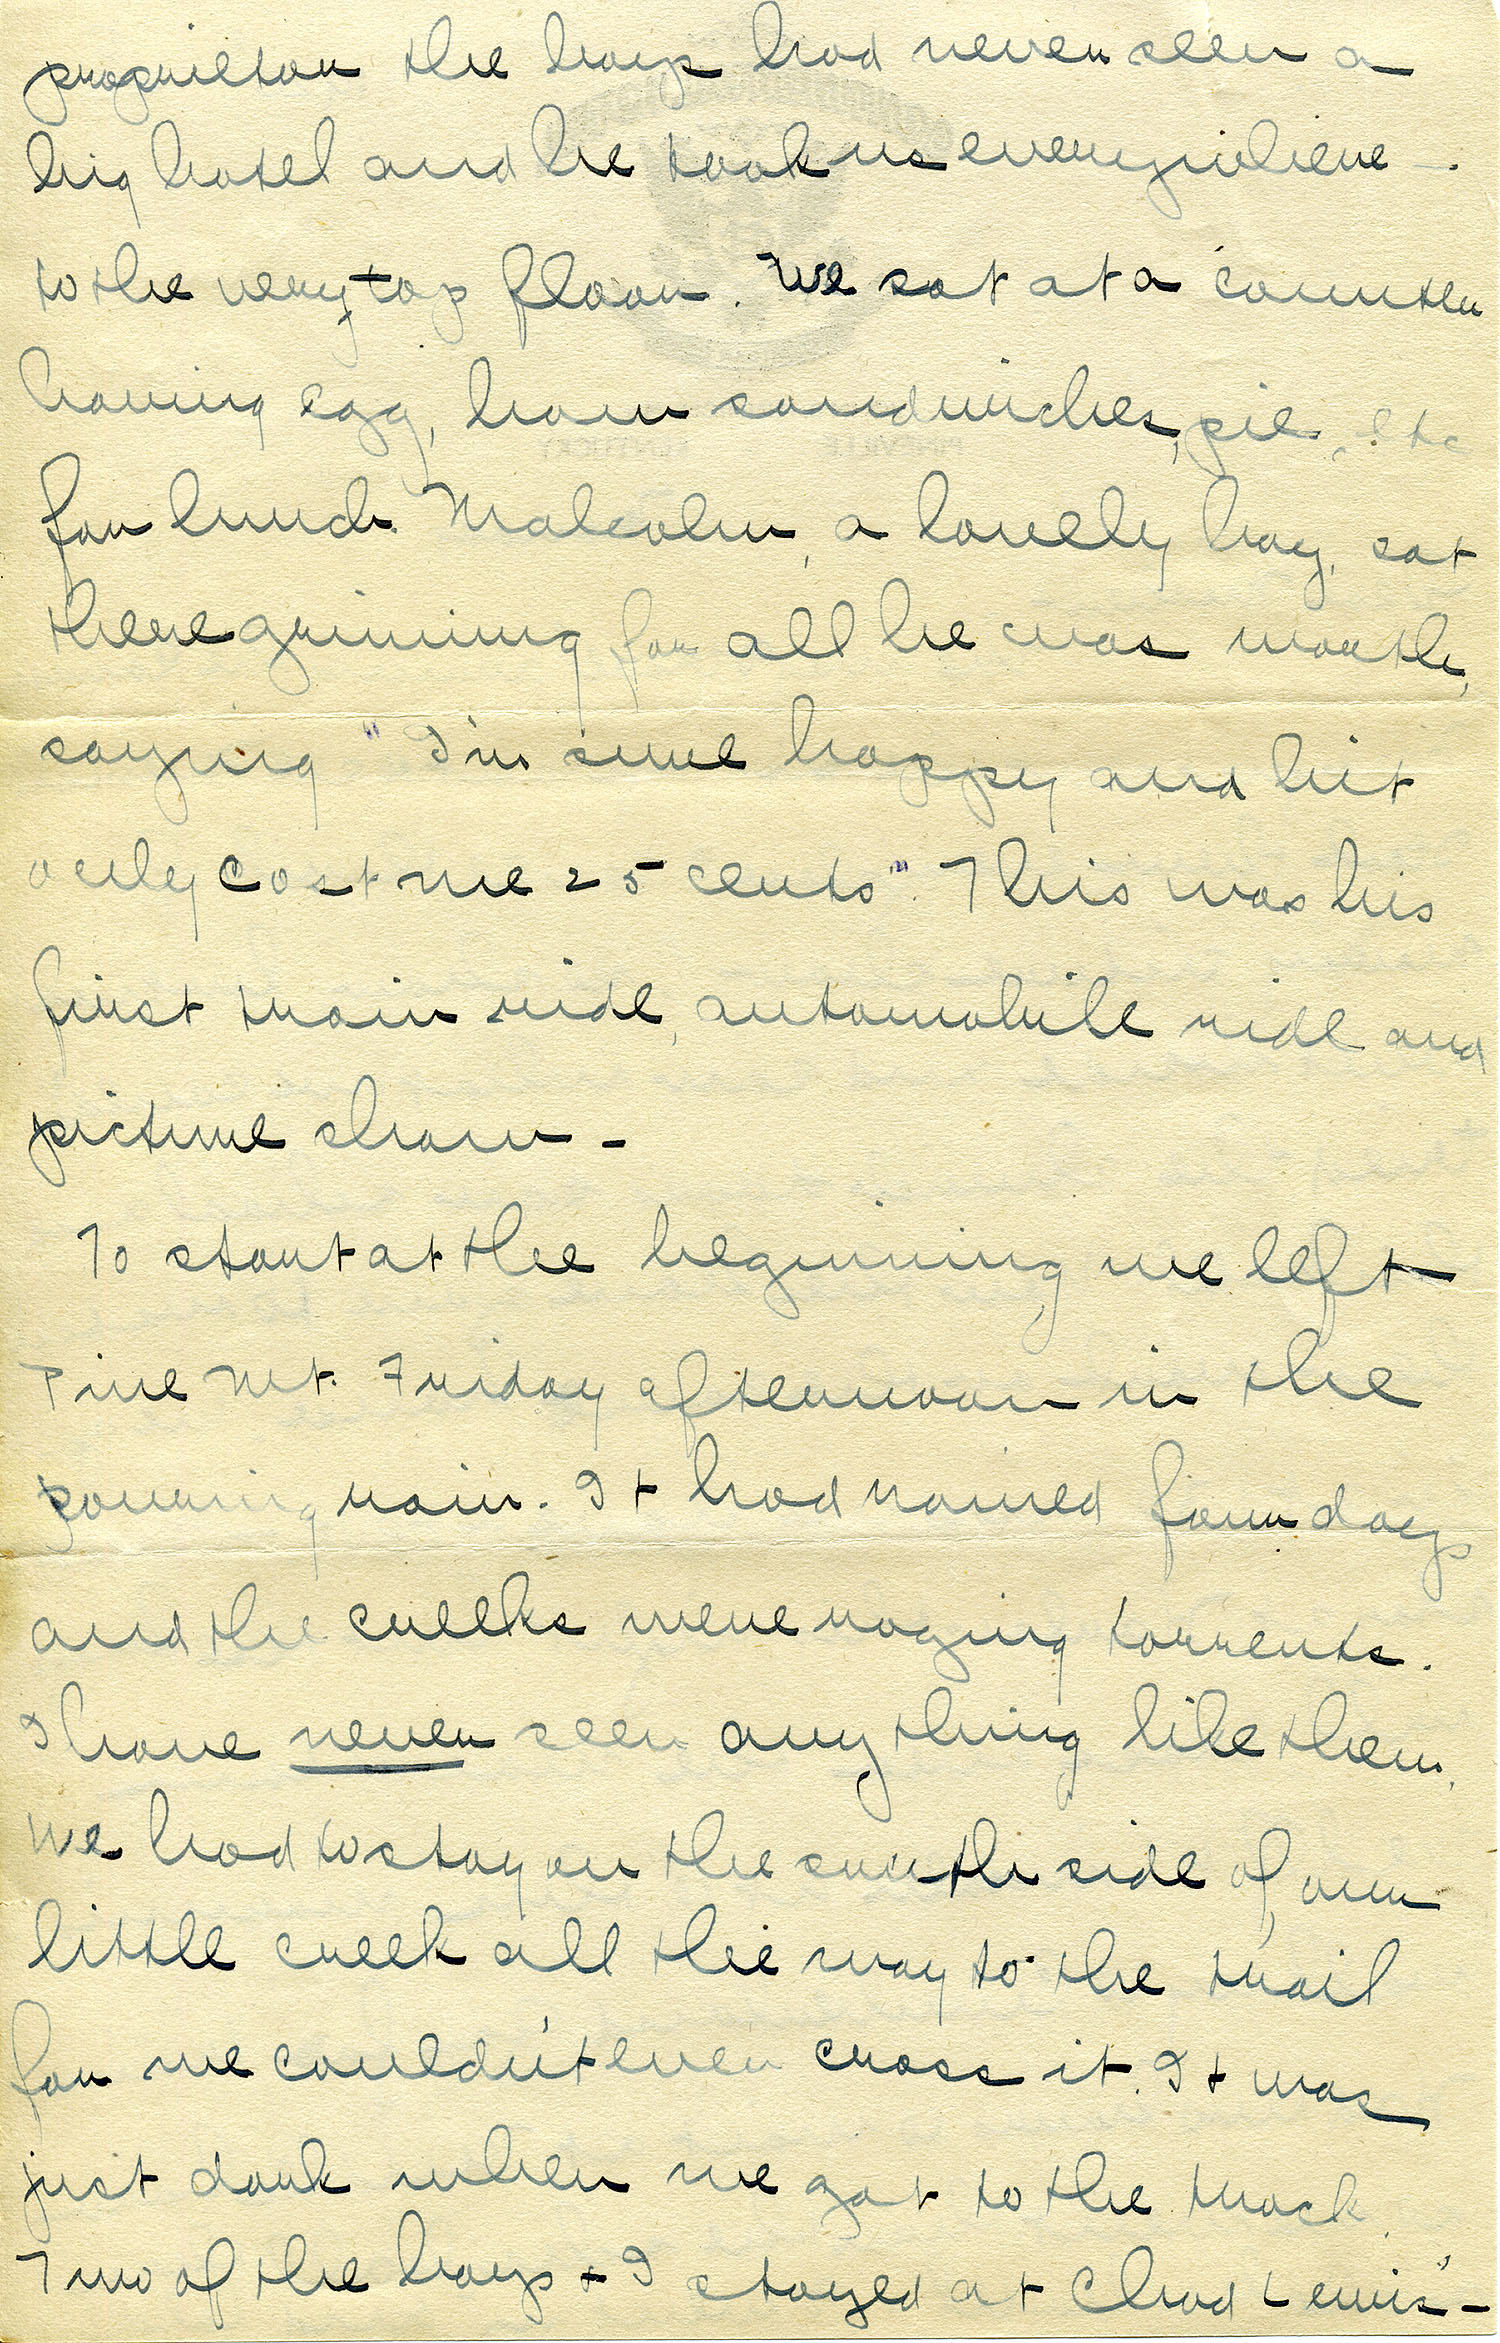 proprietor the boys had never seen a
big hotel and he took us everywhere -.
to the very top floor. We sat at a counter
having egg, ham sandwiches, pie, etc
for lunch. Malcolm, a lovely boy, sat
there grinning for all he was worth,
saying "I'm sure happy and hit
only cost me 25 cents". This was his
first train ride, automobile ride and
picture show -
To start at the beginning, we left
Pine Mt. Friday afternoon in the
pouring rain. It had rained four days
and the creeks were raging torrents.
I have never seen anything like them.
We had to stay on the south side of our
little creek all the way to the trail
for we couldn't even cross it. It was
just dark when we got to the track.
Two of the boys + I stayed at Chad Lewis' -